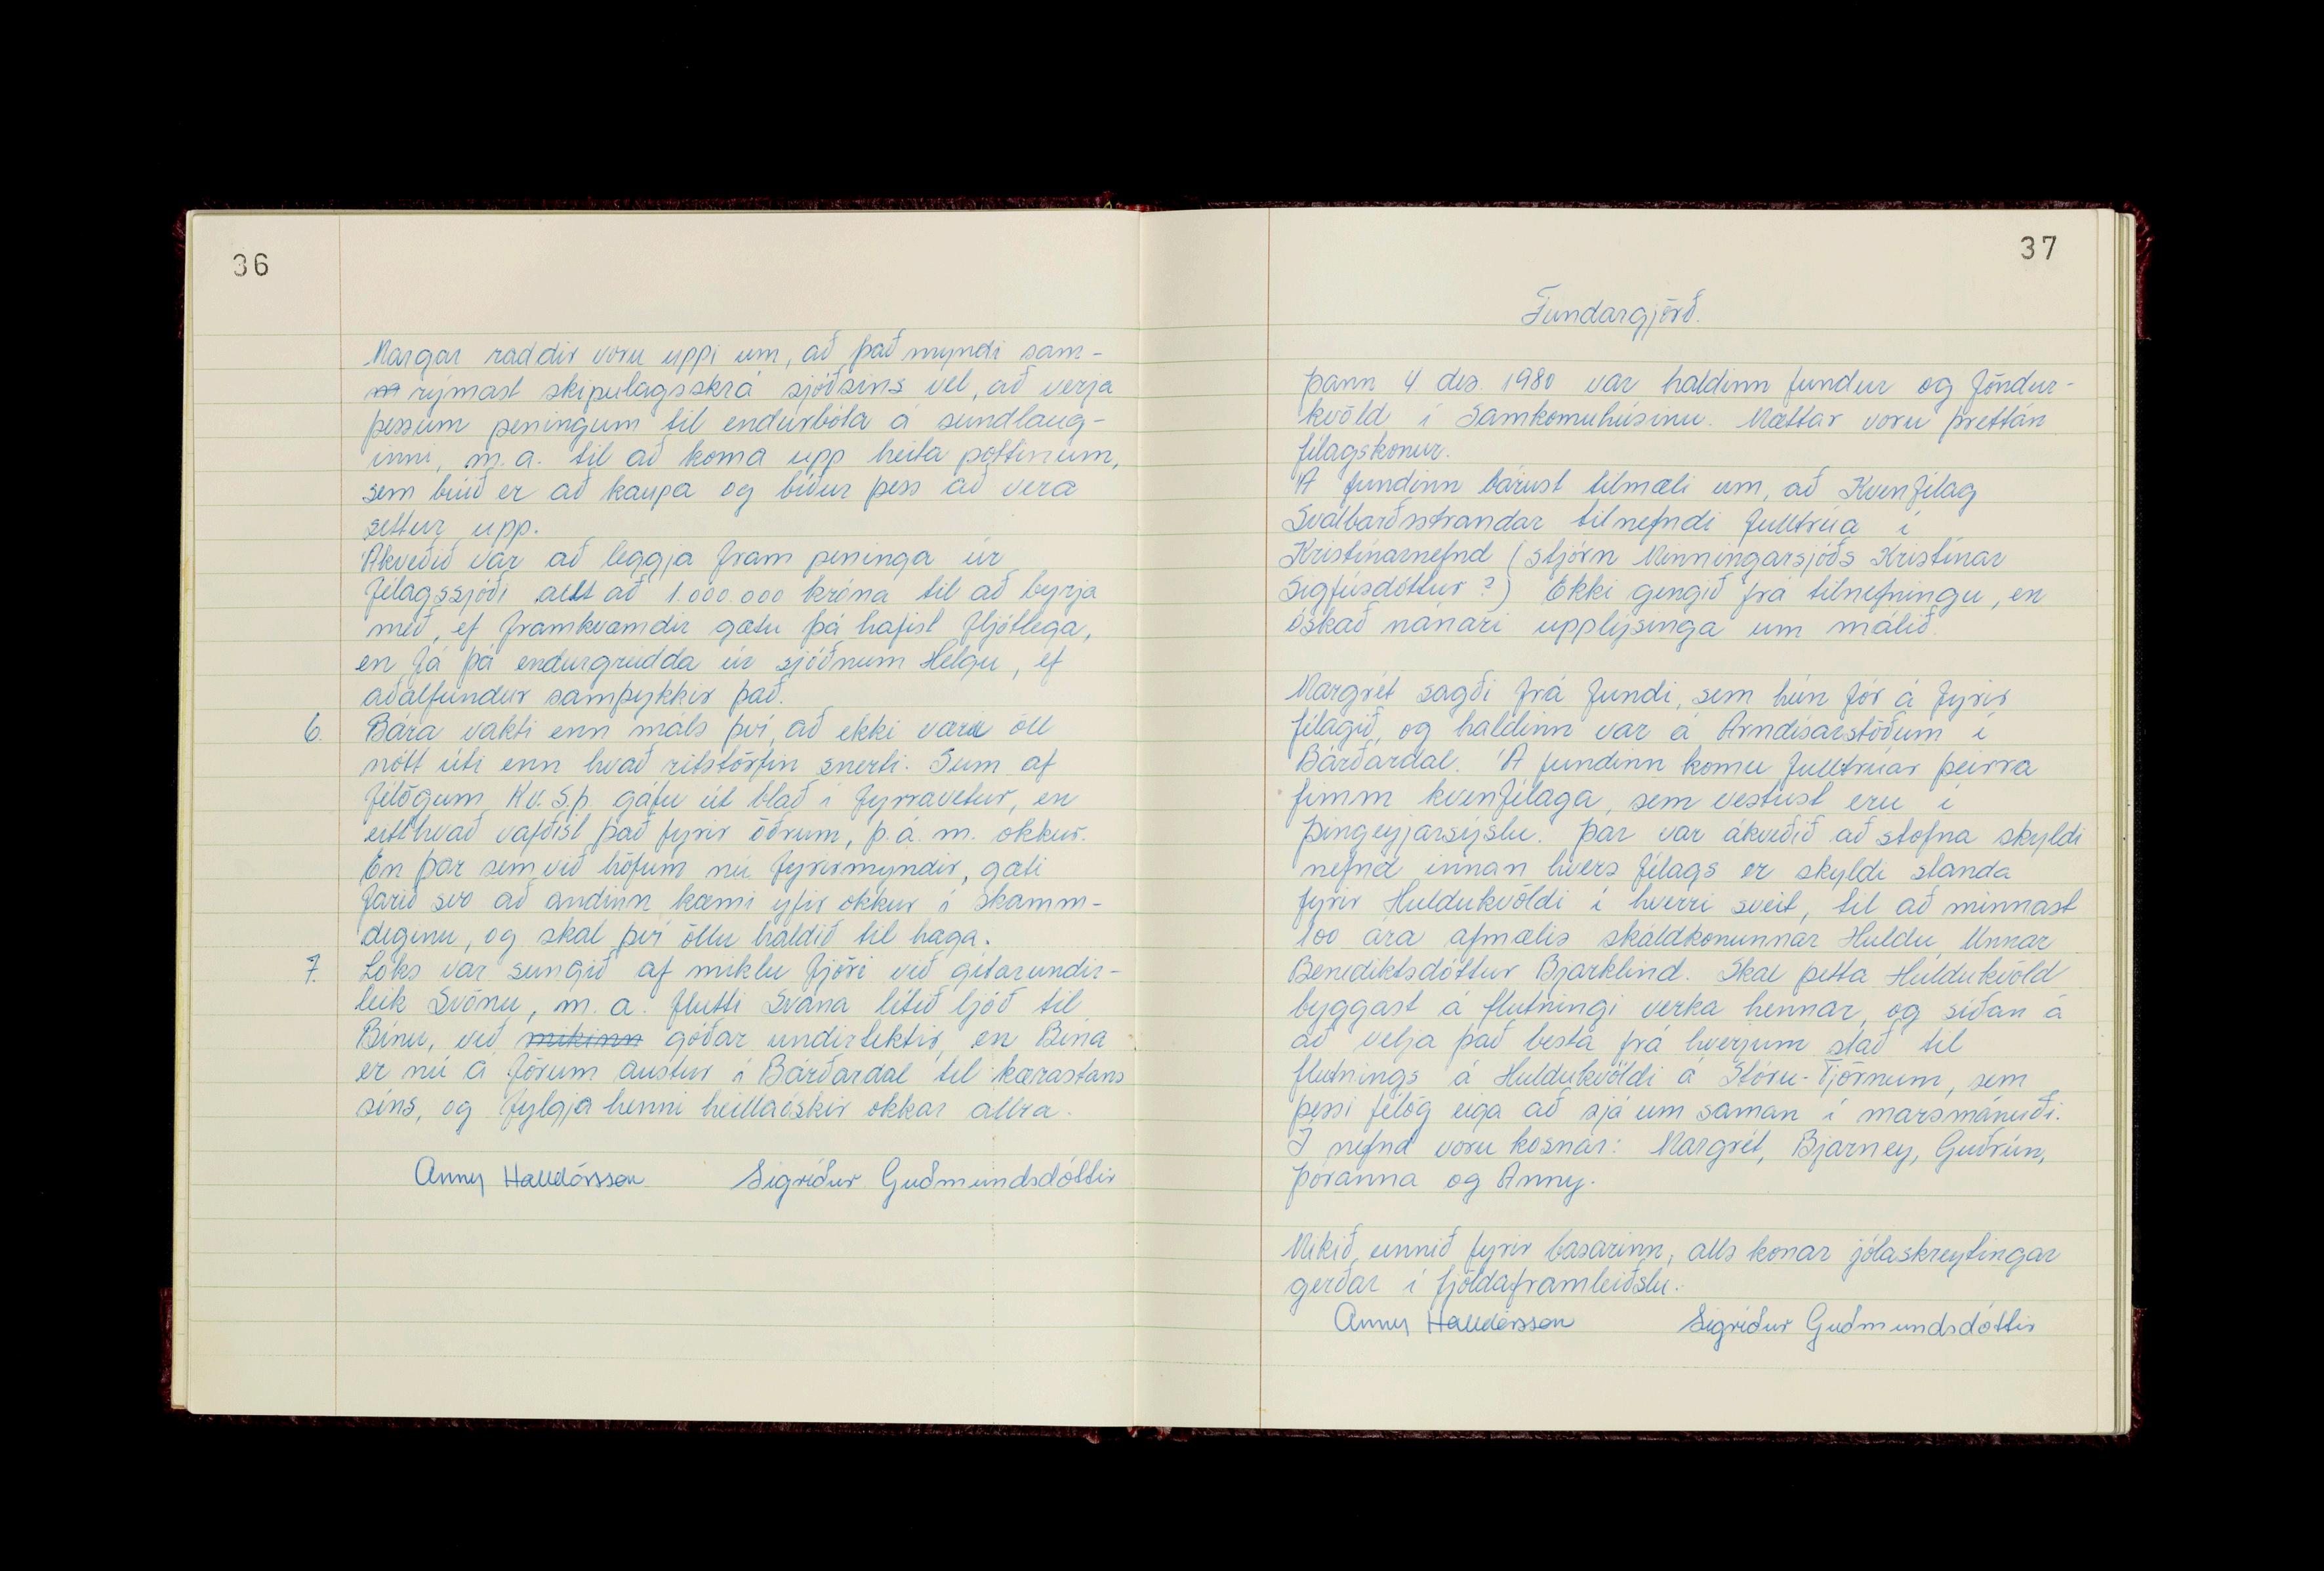 36
Margar raddir voru uppi um, að það myndi sam-
m rýmast skipulagsskrá sjóðsins vel, að verja
þessum peningum til endurbóta á sundlaug-
inni, m.a. til að koma upp heita pottinum,
sem búið er að kaupa og bíður þess að vera
settur upp.
Ákveðið var að leggja fram peninga úr
félagssjóði allt að 1.000.000 króna til að byrja
með, ef framkvæmdir gætu þá hafist fljótlega,
en fá þá endurgreidda úr sjóðnum Helgu, ef
aðalfundur samþykkir það.
6. Bára vakti enn máls því, að ekki væri öll
nótt úti enn hvað ritstörfin snerti. Sum af
félögum Kv. S.þ. gáfu út blað í fyrravetur, en
eitthvað vafðist það fyrir öðrum, þ.á.m. okkur.
En þar sem við höfum nú fyrirmyndir, gæti
farið svo að andinn kæmi yfir okkur í skamm-
deginu, og skal því öllu haldið til haga.
7. Loks var sungið af miklu fjöri við gítarundir-
leik Svönu, m.a. flutti Svana lítið ljóð til
Bínu, við mikinn góðar undirtektir, en Bína
er nú á förum austur í Bárðardal til kærastans
síns, og fylgja henni heillaóskir okkar allra.
Anny Halldórsson Sigríður Guðmundsdóttir
37
Fundargjörð.
Þann 4 des. 1980 var haldinn fundur og föndur-
kvöld í Samkomuhúsinu. Mættar voru þrettán
félagskonur.
Á fundinn bárust tilmæli um, að Kvenfélag
Svalbarðsstrandar tilnefndi fulltrúa í
Kristínarnefnd (stjórn Minningarsjóðs Kristínar
Sigfúsdóttur?) Ekki gengið frá tilnefningu, en
óskað nánari upplýsinga um málið.
Margrét sagði frá fundi, sem hún fór á fyrir
félagið, og haldinn var á Arndísarstöðum í
Bárðardal. Á fundinn komu fulltrúar þeirra
fimm kvenfélaga, sem vestust eru í
Þingeyjarsýslu. Þar var ákveðið að stofna skyldi
nefnd innan hvers félags er skyldi standa
fyrir Huldukvöldi í hverri sveit, til að minnast
100 ára afmælis skáldkonunnar Huldu, Unnar
Benediktsdóttur Bjarklind. Skal þetta Huldukvöld
byggast á flutningi verka hennar, og síðan á
að velja það besta frá hverjum stað til
flutnings á Huldukvöldi á Stóru-Tjörnum, sem
þessi félög eiga að sjá um saman í marsmánuði.
Í nefnd voru kosnar: Margrét, Bjarney, Guðrún,
Þóranna og Anny.
Mikið unnið fyrir basarinn, alls konar jólaskreytingar
gerðar í fjöldaframleiðslu.
Anny Halldórsson Sigríður Guðmundsdóttir